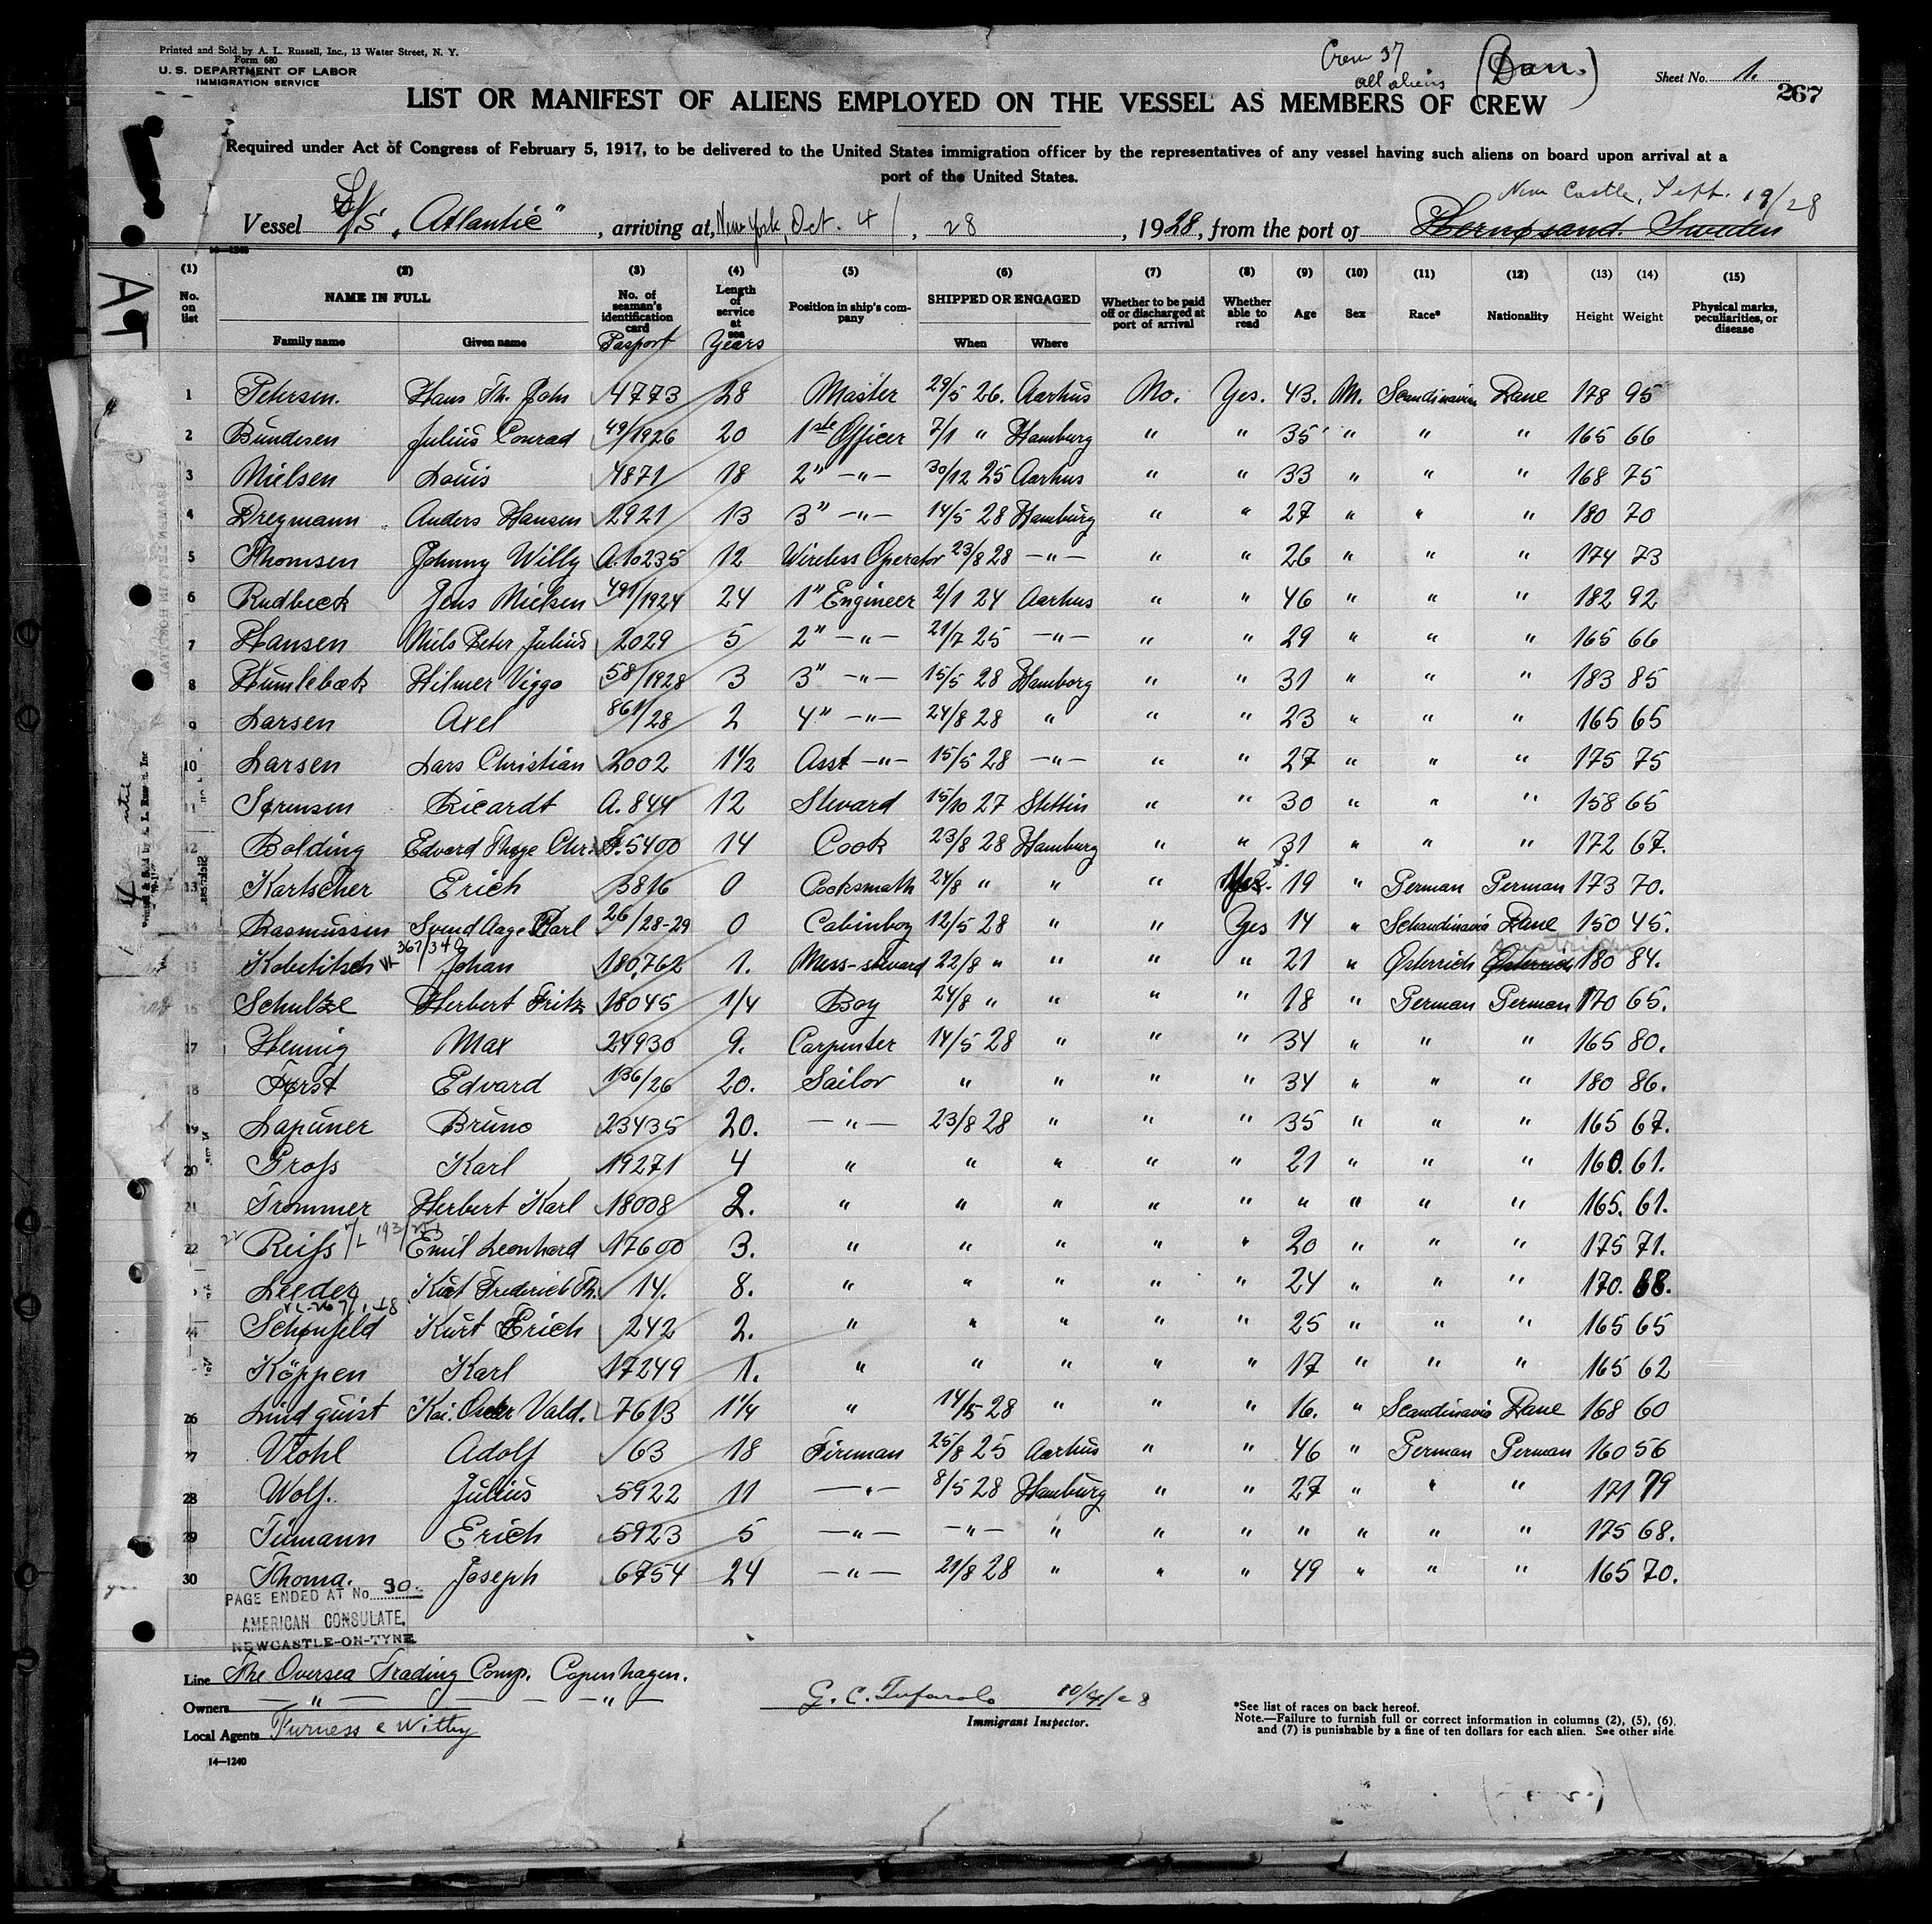 Printed and Sold by A. L. Russell, Inc., 13 Water Street, N. Y.
Form 680
U. S. DEPARTMENT OF LABOR
IMMIGRATION SERVICE
Crew 37
all aliens
(Dan.)
Sheet No. 1.
267
LIST OR MANIFEST OF ALIENS EMPLOYED ON THE VESSEL AS MEMBERS OF CREW
Required under Act of Congress of February 5, 1917, to be delivered to the United States immigration officer by the representatives of any vessel having such aliens on board upon arrival at a
port of the United States.
New Castle, Sept. 19/28
Vessel S/S "Atlantic", arriving at, New York, Oct. 4/, 28, 1928, from the port of Hernøsand. Sweden
14—1240
(1) (2) (3) (4) (5) (6) (7) (8) (9) (10) (11) (12) (13) (14) (15)
No. on list
NAME IN FULL
Family name
Given name
No. of seaman's identification card
Pasport
Length of service at sea
Years
Position in ship's company
SHIPPED OR ENGAGED
When
Where
Whether to be paid off or discharged at port of arrival
Whether able to read
Age
Sex
Race*
Nationality
Height
Weight
Physical marks, peculiarities, or disease
1 Petersen. Hans Th. John 4773 28 Master 29/5 26. Aarhus No. Yes. 43. M. Scandinavian Dane 178 95
2 Bundesen Julius Conrad 49/1926 20 1ste Officer 7/1 " Hamburg " " 35 " " " 165 66
3 Nielsen Louis 4871 18 2" —"— 30/12 25 Aarhus " " 33 " " " 168 75
4 Dregmann Anders Hansen 2921 13 3" —"— 14/5 28 Hamburg " " 27 " " " 180 70
5 Thomsen Johnny Willy A.10235 12 Wireless Operator 23/8 28 —"— " " 26 " " " 174 73
6 Rudbeck Jens Nielsen 491/1924 24 1" Engineer 2/1 24 Aarhus " " 46 " " " 182 92
7 Hansen Niels Peter Julius 2029 5 2" —"— 21/7 25 —"— " " 29 " " " 165 66
8 Humlebæk Hilmer Viggo 58/1928 3 3" —"— 15/5 28 Hamborg " " 31 " " " 183 85
9 Larsen Axel 861/28 2 4" —"— 24/8 28 " " " 23 " " " 165 65
10 Larsen Lars Christian 2002 1 1/2 Asst —"— 15/5 28 —"— " " 27 " " " 175 75
11 Sørensen Ricardt A.844 12 Stevard 15/10 27 Stettin " " 30 " " " 158 65
12 Bolding Edvard Thyge Chr. 5400 14 Cook 23/8 28 Hamburg " " 31 " " " 172 67.
13 Kartscher Erich 3816 0 Cooksmath 24/8 " " " Yes. 19 " German German 173 70.
14 Rasmussin Svend Aage Karl 26/28-29 0 Cabinboy 12/5 28 " " Yes 14 " Schandinavia Dane 150 45.
367/340 Austrian
15 Kobetitsch Johan 180,762 1. Mess-stevard 22/8 " " " " 21 " Østerrich Østerrich 180 84.
16 Schultze Herbert Fritz 18045 1/4 Boy 24/8 " " " " 18 " German German 170 65.
17 Hennig Max 24930 9. Carpenter 14/5 28 " " " 34 " " " 165 80.
18 Forst Edvard 136/26 20. Sailor " " " " 34 " " " 180 86.
19 Lapuner Bruno 23435 20. —"— 23/8 28 " " " 35 " " " 165 67.
20 Gross Karl 19271 4 " " " " " 21 " " " 160. 61.
21 Trommer Herbert Karl 18008 2. " " " " " " " " " 165. 61.
22 Reifs Emil Leonhard 17600 3. " " " " " 20 " " " 175 71.
Leeder Kurt Frederick Th. 14. 8. " " " " " 24 " " " 170. 68.
24 Schønfeld Kurt Erich 242 2. " " " " " 25 " " " 165 65
Köppen Karl 17249 1. " " " " " 17 " " " 165 62
26 Lindquist Kai. Oscar Vald. 7613 1 1/4 " 14/5 28 " " " 16. " Scandinavia Dane 168 60
27 Vlohl Adolf 63 18 Fireman 25/8 25 Aarhus " " 46 " German German 160 56
28 Wolf. Julius 5922 11 —"— 8/5 28 Hamburg " " 27 " " " 171 79
29 Tiemann Erich 5923 5 —"— —"— " " " " " " " 175 68.
30 Thoma. Joseph 6754 24 —"— 21/8 28 " " " 49 " " " 165 70.
PAGE ENDED AT No. 30.
AMERICAN CONSULATE,
NEWCASTLE-ON-TYNE
Line The Oversea Trading Comp. Copenhagen.
Owners — " — — — " —
Local Agents Furness & Withy
G. C. Tufarolo 10/4/28
Immigrant Inspector.
*See list of races on back hereof.
Note.—Failure to furnish full or correct information in columns (2), (5), (6),
and (7) is punishable by a fine of ten dollars for each alien. See other side
14—1240